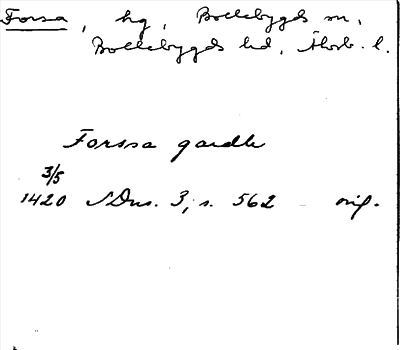 Forsa, hg, Bollebygds sn,
Bollebygds hd, Älvsb. l.
Forssa gardh
3/5
1420 SDns. 3, s. 562 - orig.